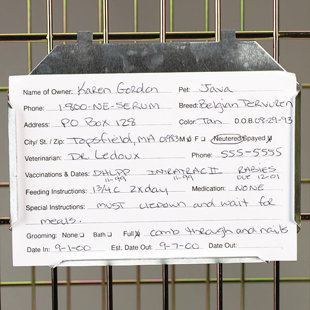 Name of Owner: Karen Gordon Pet: Java
Phone: 1-800-NE-SERUM Breed: Belgian Tervuren
Address: PO Box 128 Color: Tan D.O.B. 08-29-93
City/ St. / Zip: Topsfield, MA 01983 M F Neutered Spayed
Veterinarian: Dr Ledoux Phone: 555-5555
Vaccinations & Dates: DHLPP 11-99 INTRATRAC II 11-99 RABIES DUE 12-01
Feeding Instructions: 1 3/4 C 2x day Medication: NONE
Special Instructions: must lie down and wait for
meals.
Grooming: None Bath Full comb through and nails
Date In: 9-1-00 Est. Date Out: 9-7-00 Date Out: